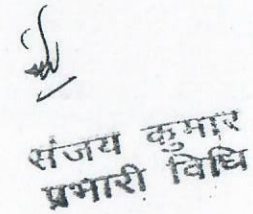 संजय कुमार
प्रभारी विधि